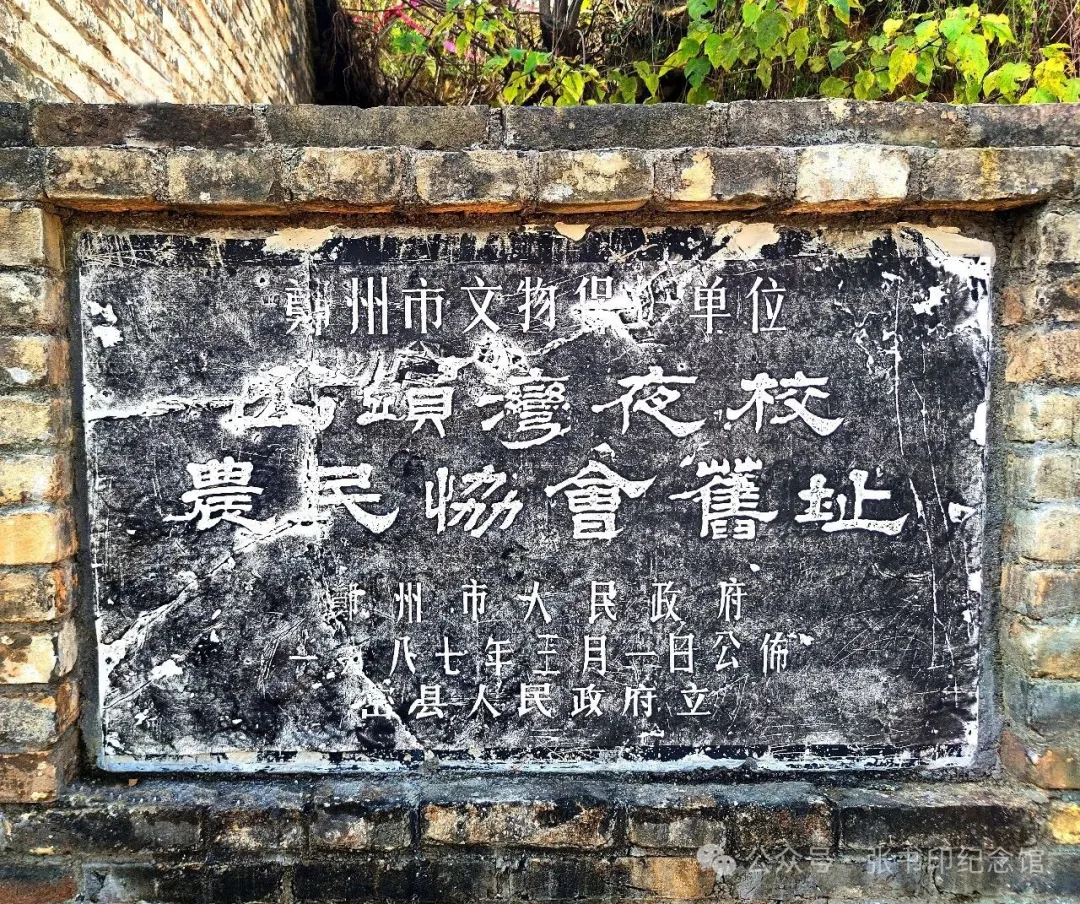 鄭州市文物保护单位
頭灣夜校
農民協會舊址
鄭州市人民政府
一九八七年三月一日公佈
密县人民政府立
公众号 张书印纪念馆